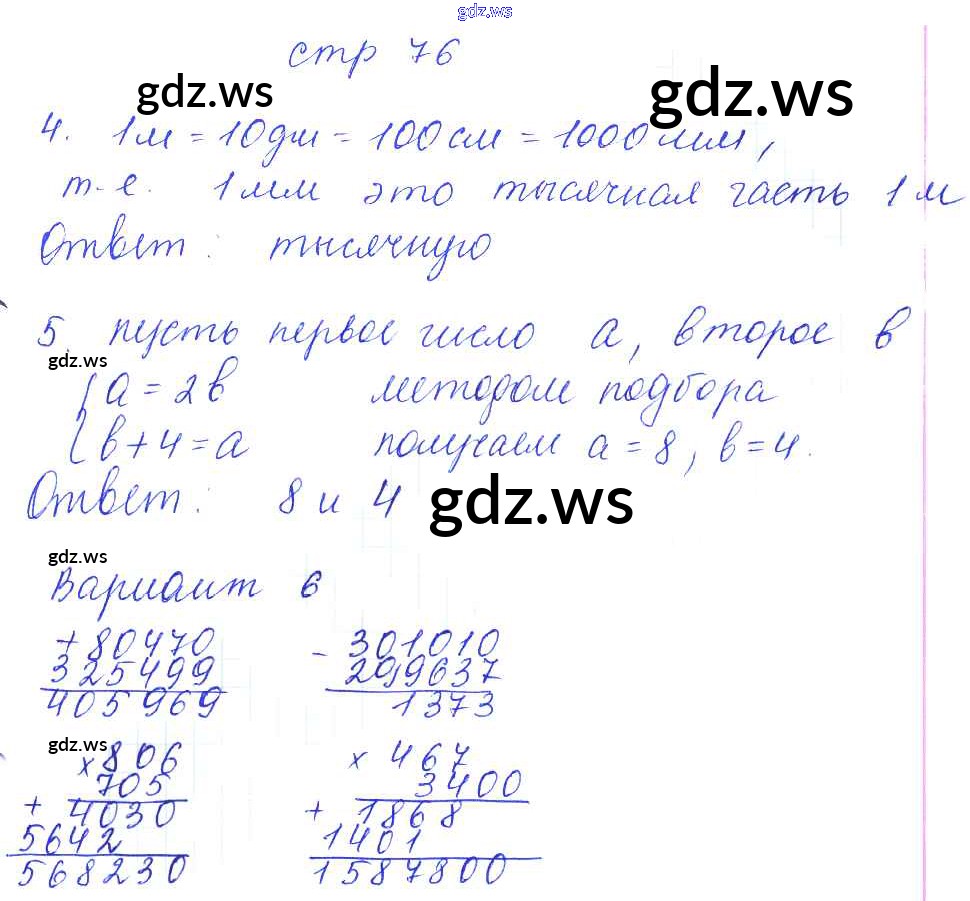 gdz.ws
стр 76
gdz.ws gdz.ws
4. 1м = 10дм = 100см = 1000мм,
т.е. 1мм это тысячная часть 1м
Ответ: тысячную
5. пусть первое число a, второе в
gdz.ws
{ a = 2в методом подбора
{ в + 4 = a получаем a = 8, в = 4.
Ответ: 8 и 4 gdz.ws
gdz.ws
Вариант 6
+ 80470 - 301010
325499 299637
405969 1373
gdz.ws
x 806 x 467
705 3400
+ 4030 + 1868
5642 1401
568230 1587800